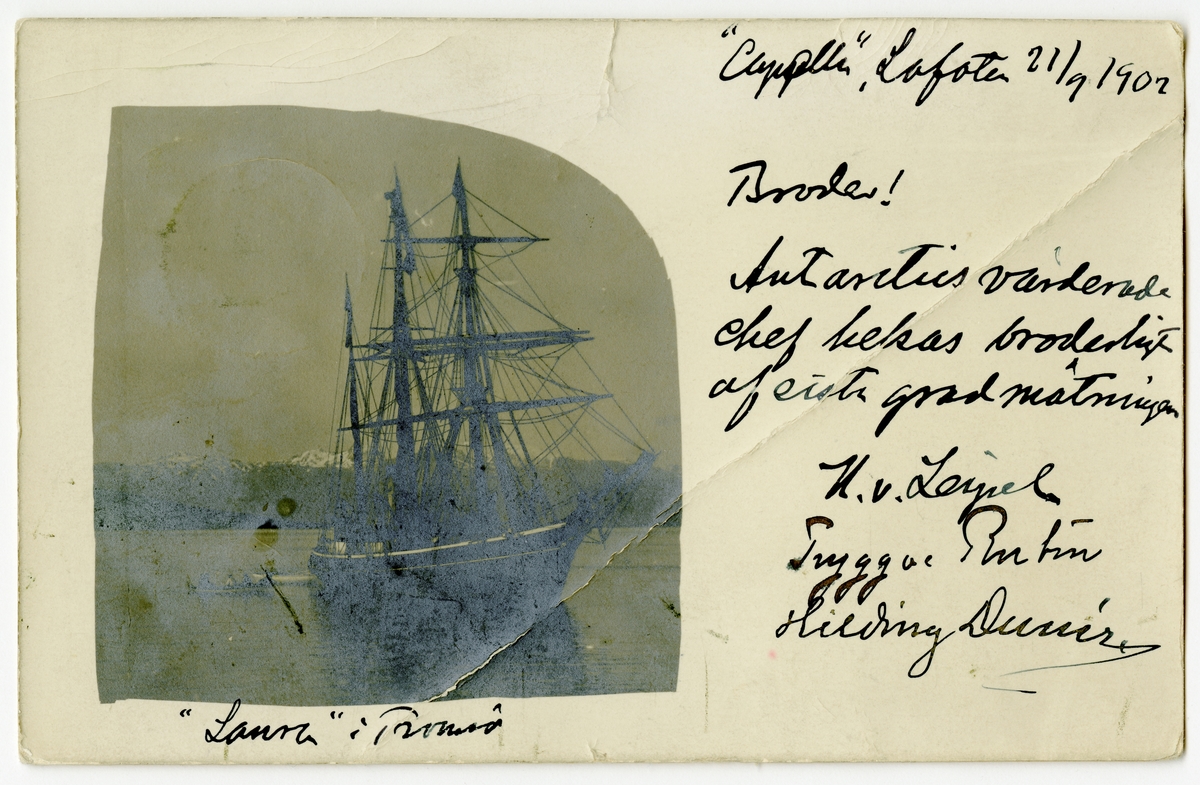 "Capella", Lofoten 21/9 1902
Broder!
Antarctics värderade
chef helsas broderligt
af sista gradmätningen
H. v. Zeipel
Tryggve Rubin
Hilding Dunér
"Laura" i Tromsö